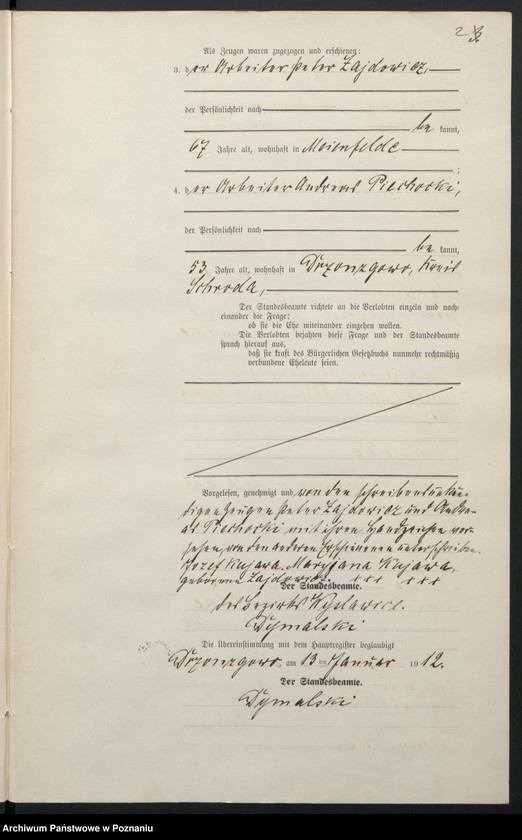 2
Als Zeugen waren zugezogen und erschienen:
3. der Arbeiter Peter Zajdowicz,
der Persönlichkeit nach
be kannt,
67 Jahre alt, wohnhaft in Meienfelde
;
4. der Arbeiter Andreas Piechocki,
der Persönlichkeit nach
be kannt,
53 Jahre alt, wohnhaft in Drzonzgowo, Kreis
Schroda,
Der Standesbeamte richtete an die Verlobten einzeln und nach-
einander die Frage:
ob sie die Ehe miteinander eingehen wollen.
Die Verlobten bejahten diese Frage und der Standesbeamte
sprach hierauf aus,
daß sie kraft des Bürgerlichen Gesetzbuchs nunmehr rechtmäßig
verbundene Eheleute seien.
Vorgelesen, genehmigt und von den schreibensunkun-
digen Zeugen Peter Zajdowicz und Andre-
as Piechocki mit ihren Handzeichen ver-
sehen, von den anderen Erschienenen unterschrieben.
Jozef Kujawa. Maryjana Kujawa,
geborene Zajdowicz. +++ +++
Der Standesbeamte.
des Bezirks
Dymalski
Die Übereinstimmung mit dem Hauptregister beglaubigt
Drzonzgowo, am 13 ten Januar 1912.
Der Standesbeamte.
Dymalski
Archiwum Państwowe w Poznaniu